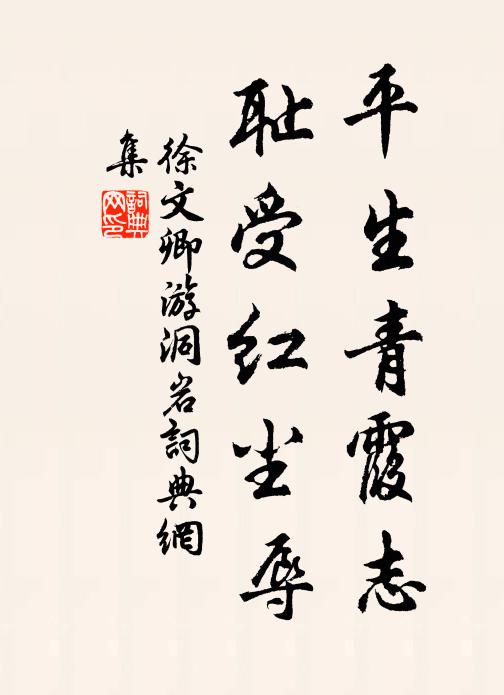 平生青霞志
耻受红尘辱
徐文卿游洞岩詞典網
集
詞典
网印